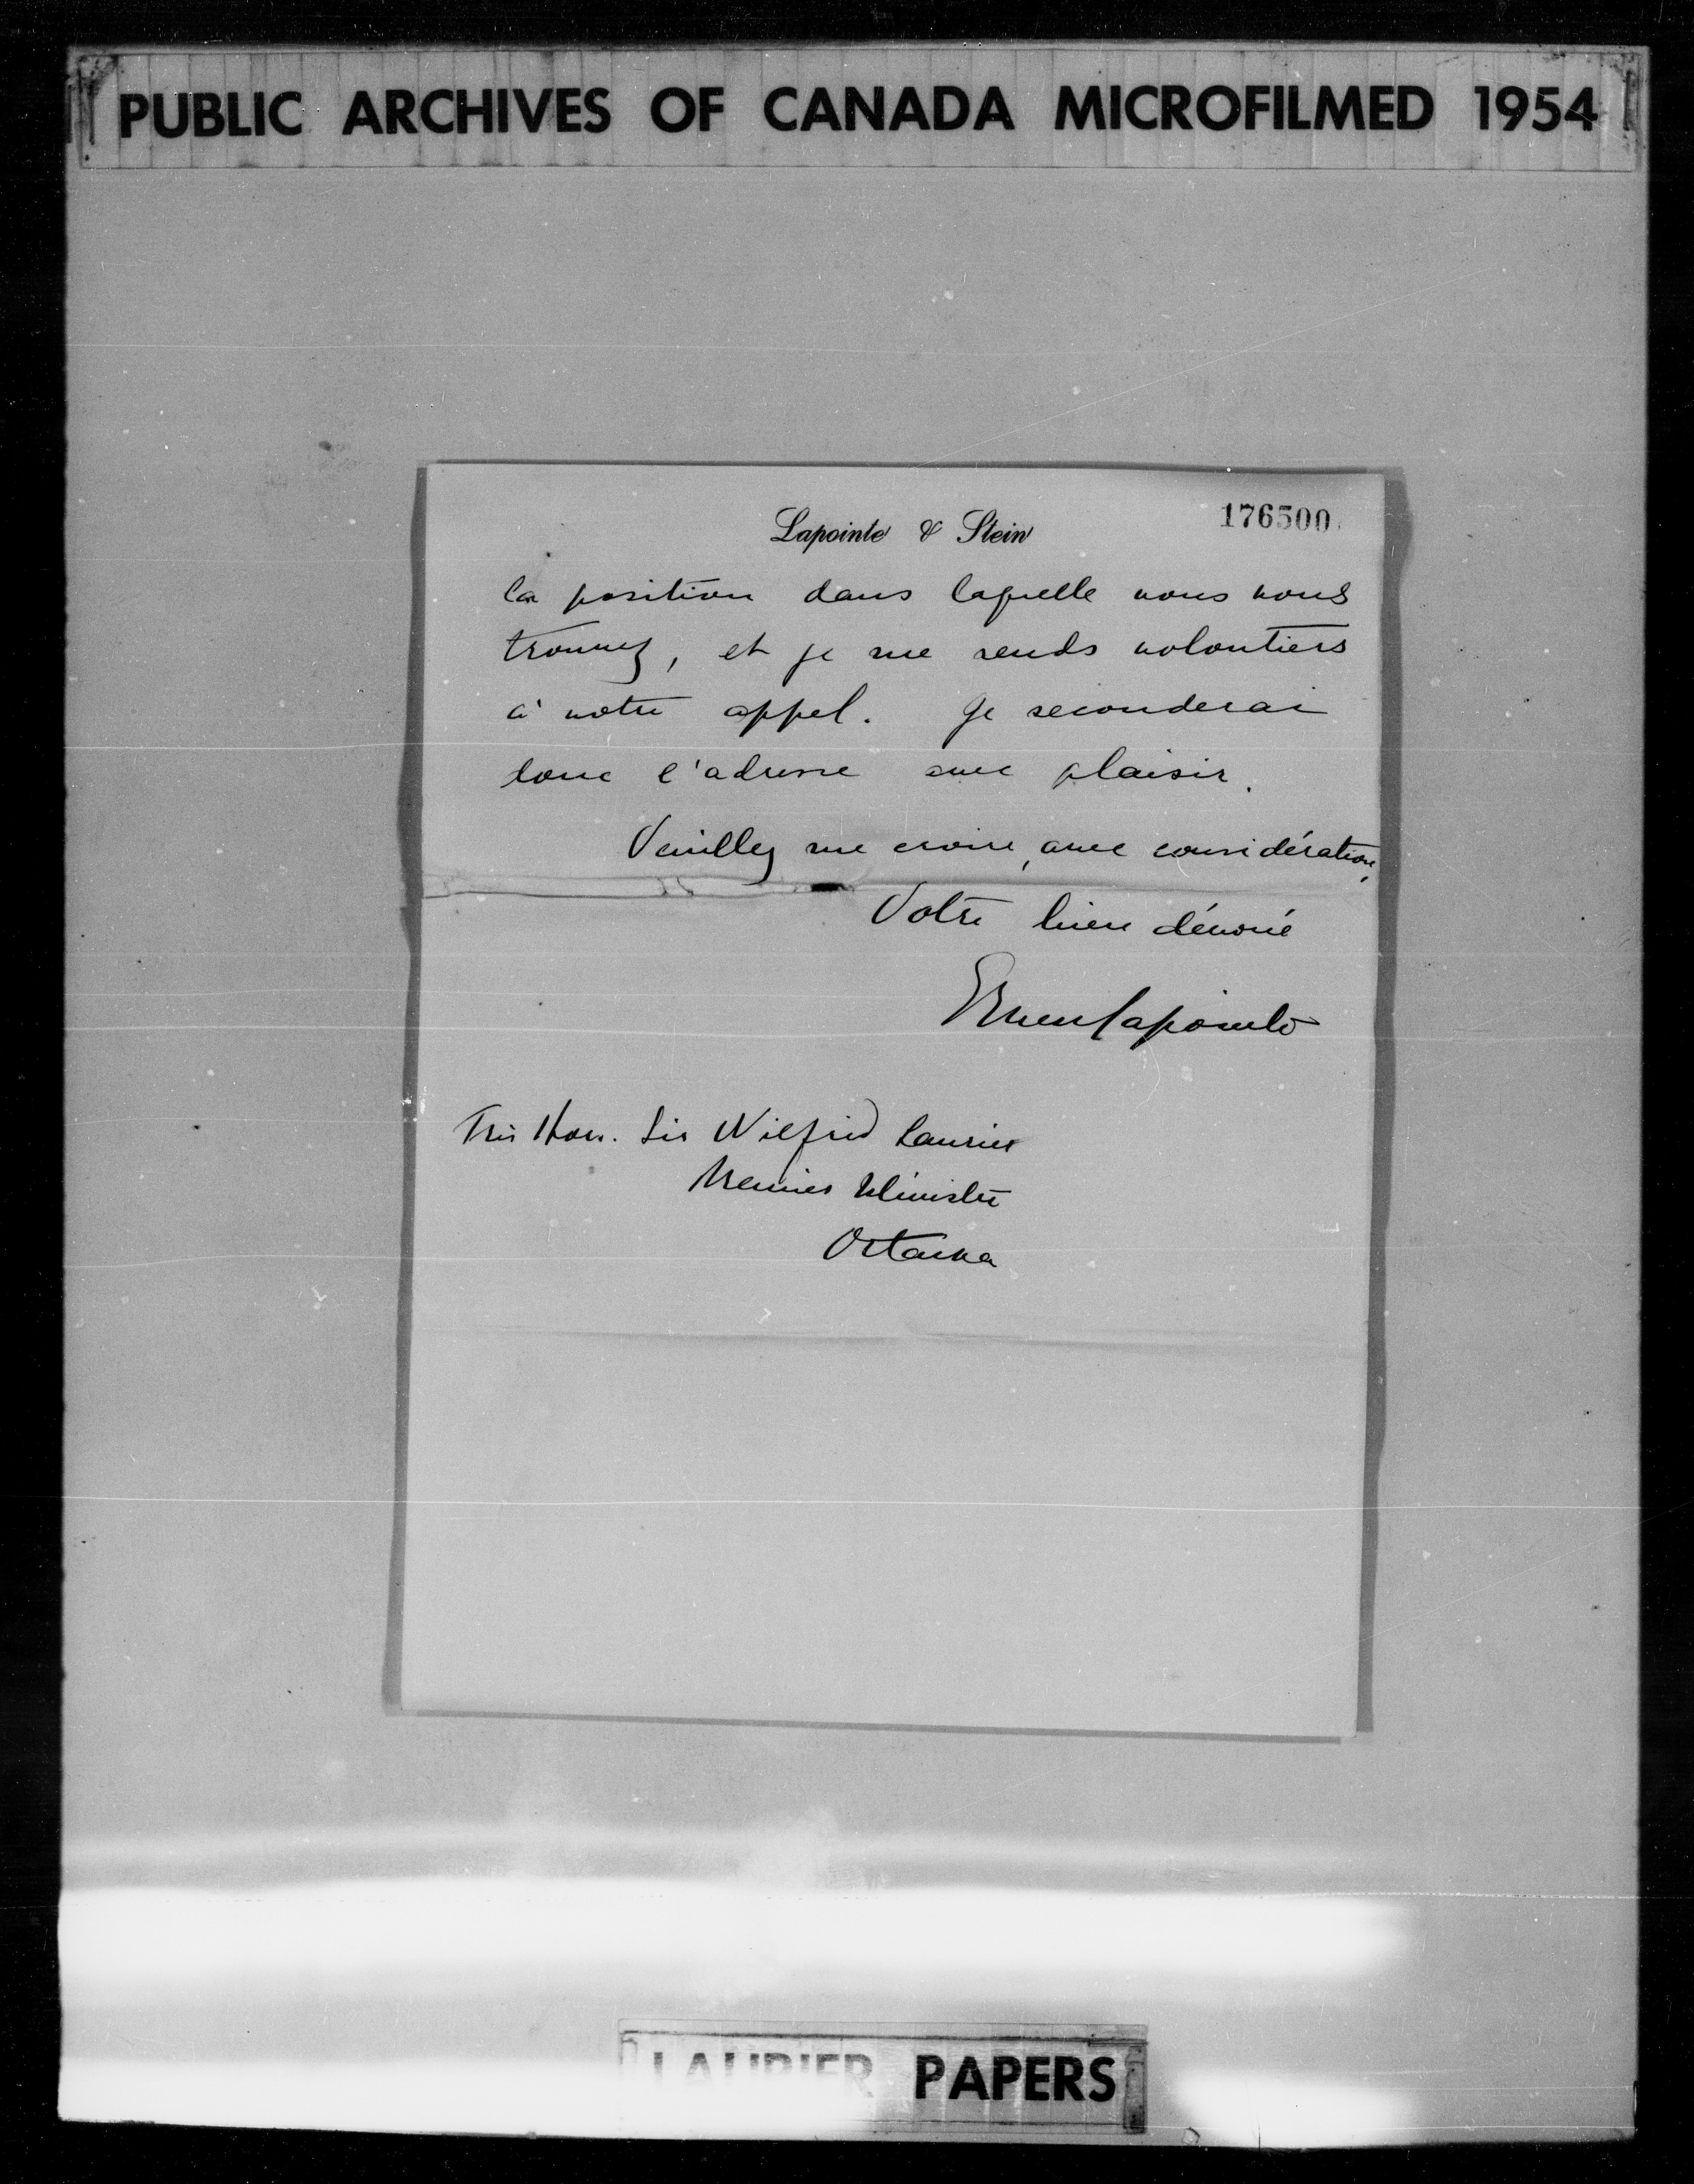 PUBLIC ARCHIVES OF CANADA MICROFILMED 1954
176500
Lapointe & Stein
la position dans laquelle vous vous
trouvez, et je me rends volontiers
à votre appel. Je seconderai
donc l'adresse avec plaisir.
Veuillez me croire, avec considération,
Votre bien dévoué
Ernest Lapointe
Très Hon. Sir Wilfrid Laurier
Premier Ministre
Ottawa
LAURIER PAPERS